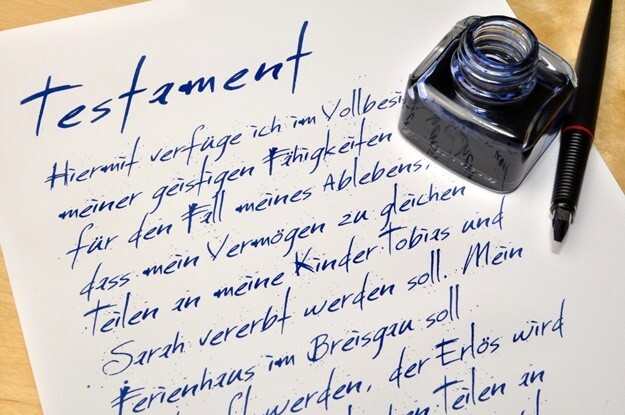 Testament
Hiermit verfüge ich im Vollbesi
meiner geistigen Fähigkeiten
für den Fall meines Ablebens,
dass mein Vermögen zu gleichen
Teilen an meine Kinder Tobias und
Sarah vererbt werden soll. Mein
Ferienhaus im Breisgau soll
werden, der Erlös wird
Teilen an